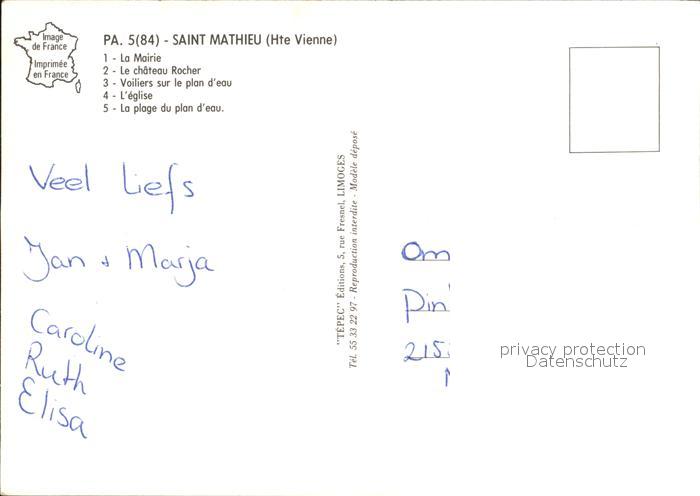 Image
de France
Imprimée
en France
PA. 5(84) - SAINT MATHIEU (Hte Vienne)
1 - La Mairie
2 - Le château Rocher
3 - Voiliers sur le plan d'eau
4 - L'église
5 - La plage du plan d'eau.
Veel Liefs
Jan + Marja
Caroline
Ruth
Elisa
"TÉPEC" Éditions, 5, rue Fresnel, LIMOGES
Tél. 55 33 22 97 - Reproduction interdite - Modèle déposé
Om
Pin
215
privacy protection
Datenschutz